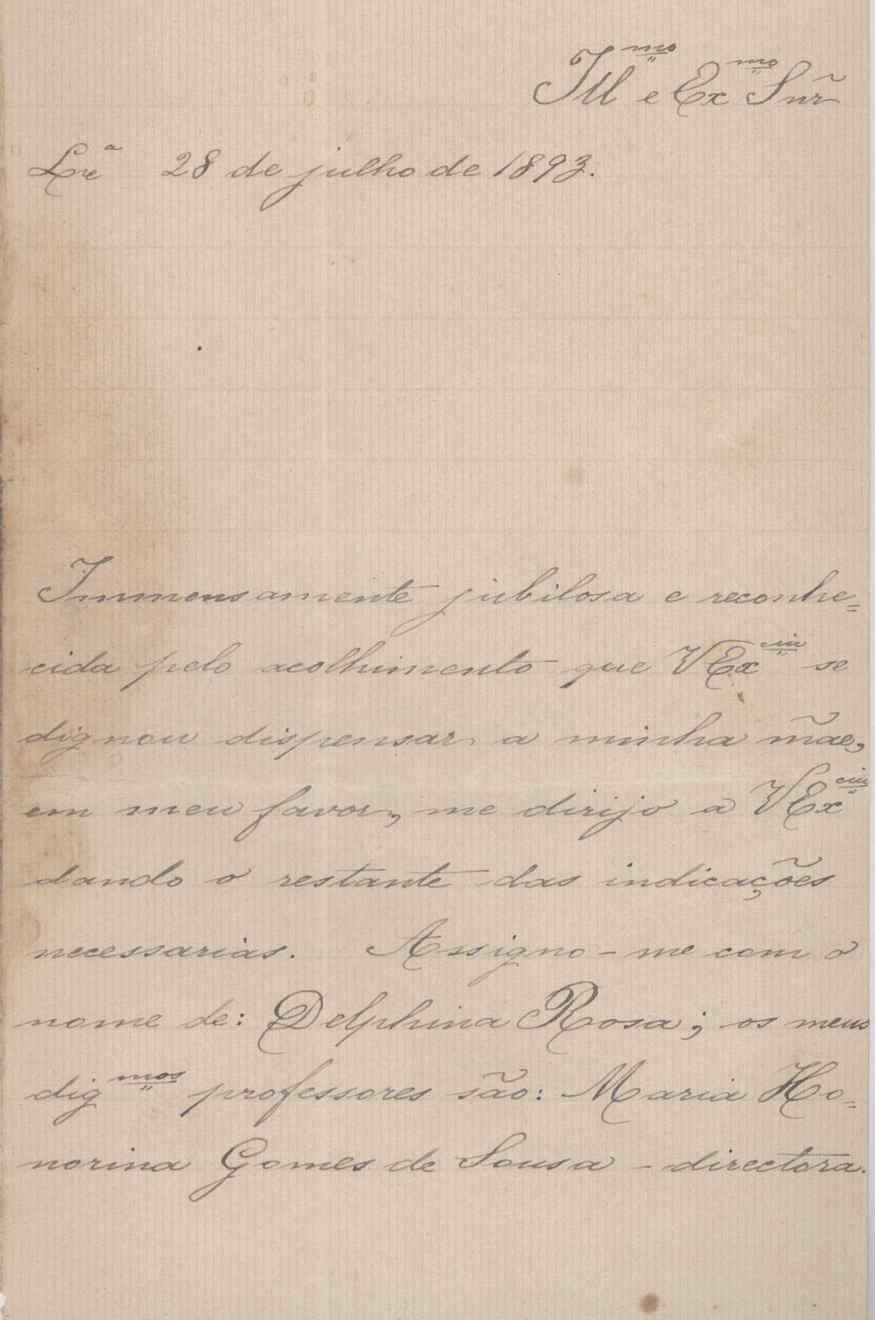 Ill^mo e Ex^mo Snr̃
Lx^a 28 de julho de 1893.
Immensamente jubilosa e reconhe=
cida pelo acolhimento que VEx^cia se
dignou dispensar a minha mãe,
em meu favor, me dirijo a VEx^cia
dando o restante das indicações
necessarias. Assigno-me com o
nome de: Delphina Rosa; os meus
dig^mos professores são: Maria Ho=
norina Gomes de Sousa - directora.